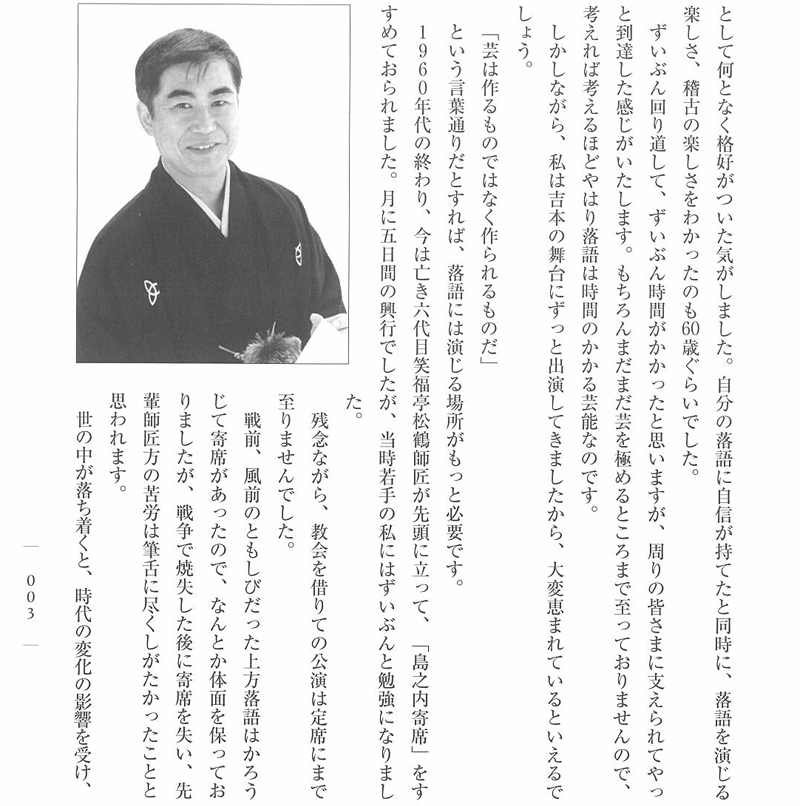 として何となく格好がついた気がしました。自分の落語に自信が持てたと同時に、落語を演じる
楽しさ、稽古の楽しさをわかったのも60歳ぐらいでした。
ずいぶん回り道して、ずいぶん時間がかかったと思いますが、周りの皆さまに支えられてやっ
と到達した感じがいたします。もちろんまだまだ芸を極めるところまで至っておりませんので、
考えれば考えるほどやはり落語は時間のかかる芸能なのです。
しかしながら、私は吉本の舞台にずっと出演してきましたから、大変恵まれているといえるで
しょう。
「芸は作るものではなく作られるものだ」
という言葉通りだとすれば、落語には演じる場所がもっと必要です。
1960年代の終わり、今は亡き六代目笑福亭松鶴師匠が先頭に立って、「島之内寄席」をす
すめておられました。月に五日間の興行でしたが、当時若手の私にはずいぶんと勉強になりまし
た。
残念ながら、教会を借りての公演は定席にまで
至りませんでした。
戦前、風前のともしびだった上方落語はかろう
じて寄席があったので、なんとか体面を保ってお
りましたが、戦争で焼失した後に寄席を失い、先
輩師匠方の苦労は筆舌に尽くしがたかったことと
思われます。
世の中が落ち着くと、時代の変化の影響を受け、
003